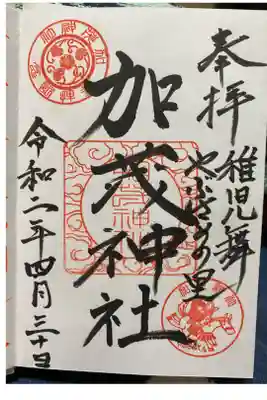 奉拝
稚児舞
やぶさめの里
加茂神社
令和二年四月三十日